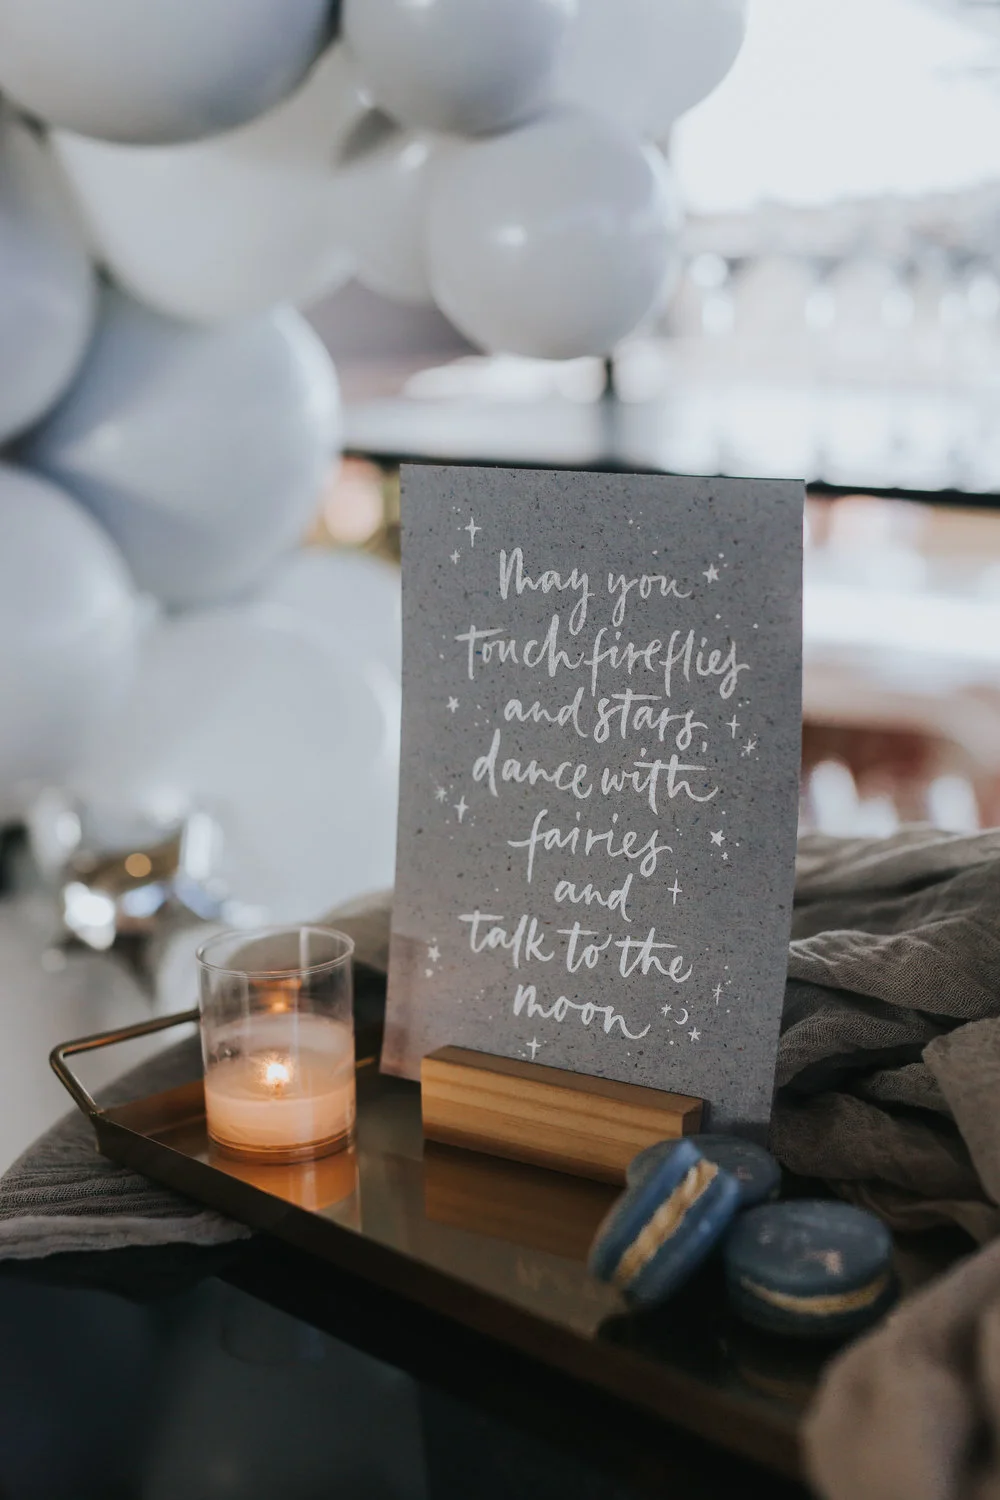 May you
touch fireflies
and stars,
dance with
fairies
and
talk to the
moon